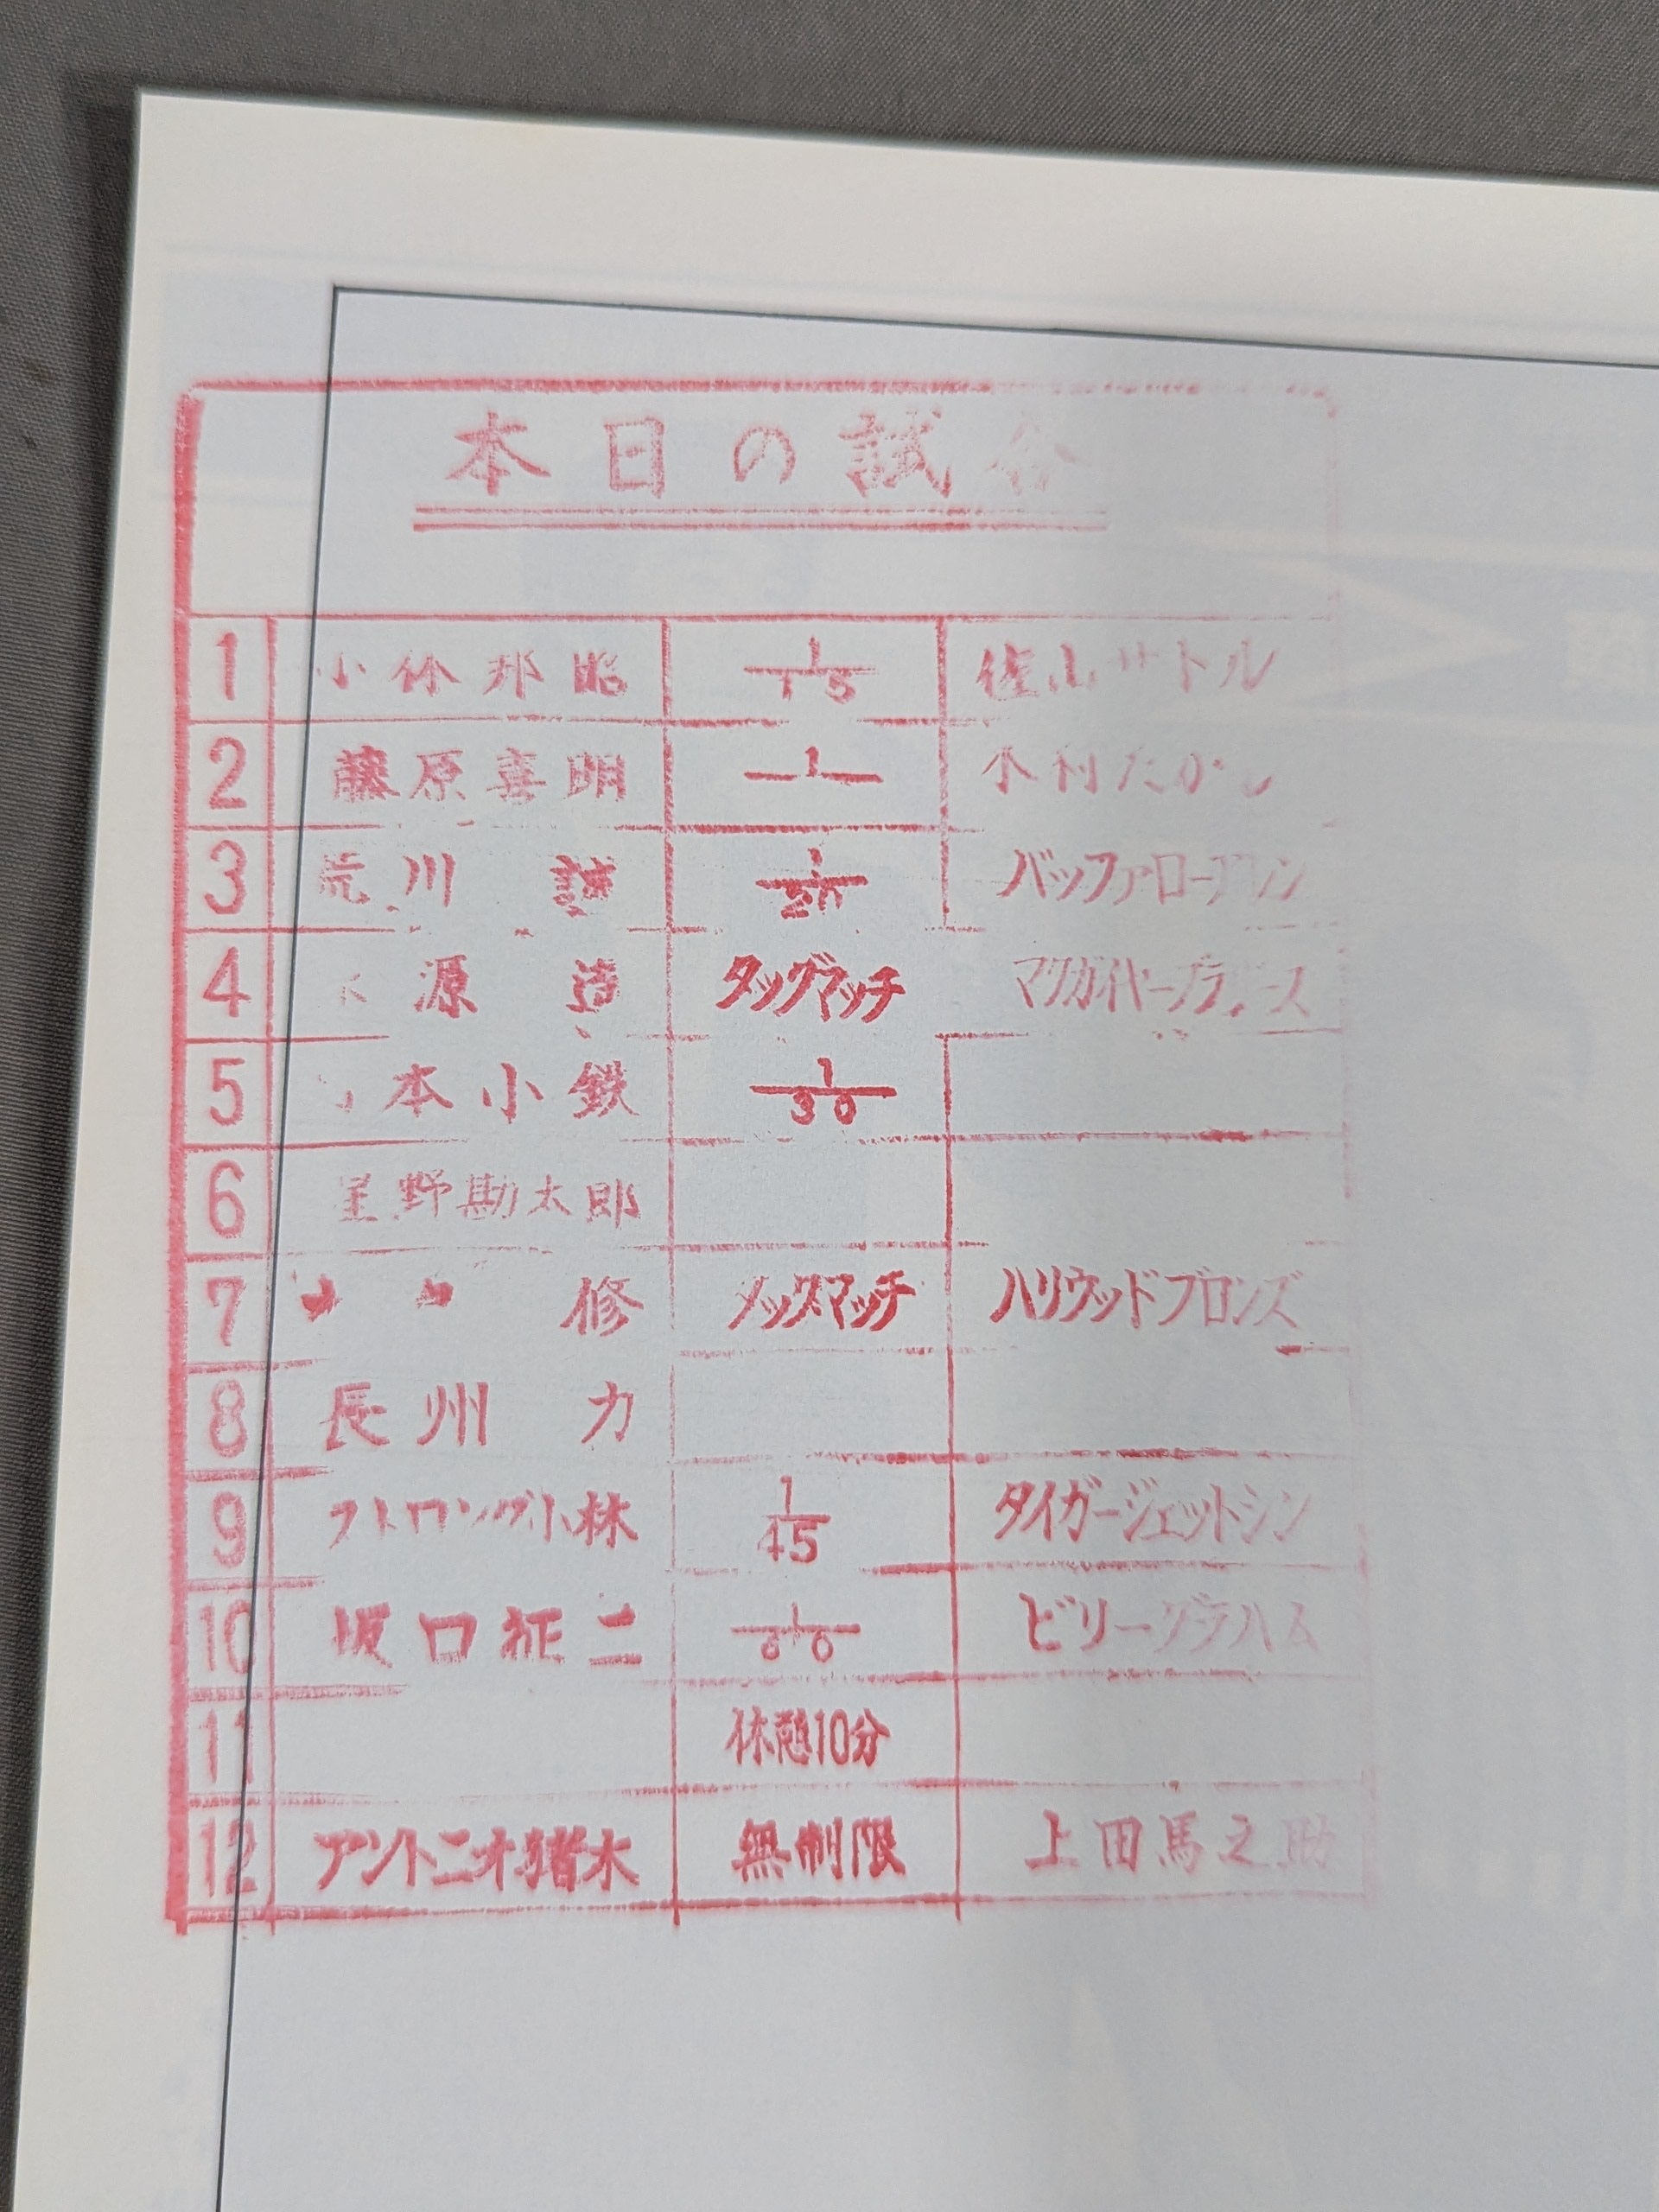 本日の試合
1 小林邦昭 1/15 佐山サトル
2 藤原喜明 1 木村たかし
3 荒川 誠 1/20 バッファロー
4 源造 タッグマッチ マクガイヤーブラザース
5 本小鉄 1/30
6 星野勘太郎
7 修 タッグマッチ ハリウッドブロンズ
8 長州 力
9 ストロング小林 1/45 タイガージェットシン
10 坂口征二 ビリーグラハム
11 休憩10分
12 アントニオ猪木 無制限 上田馬之助